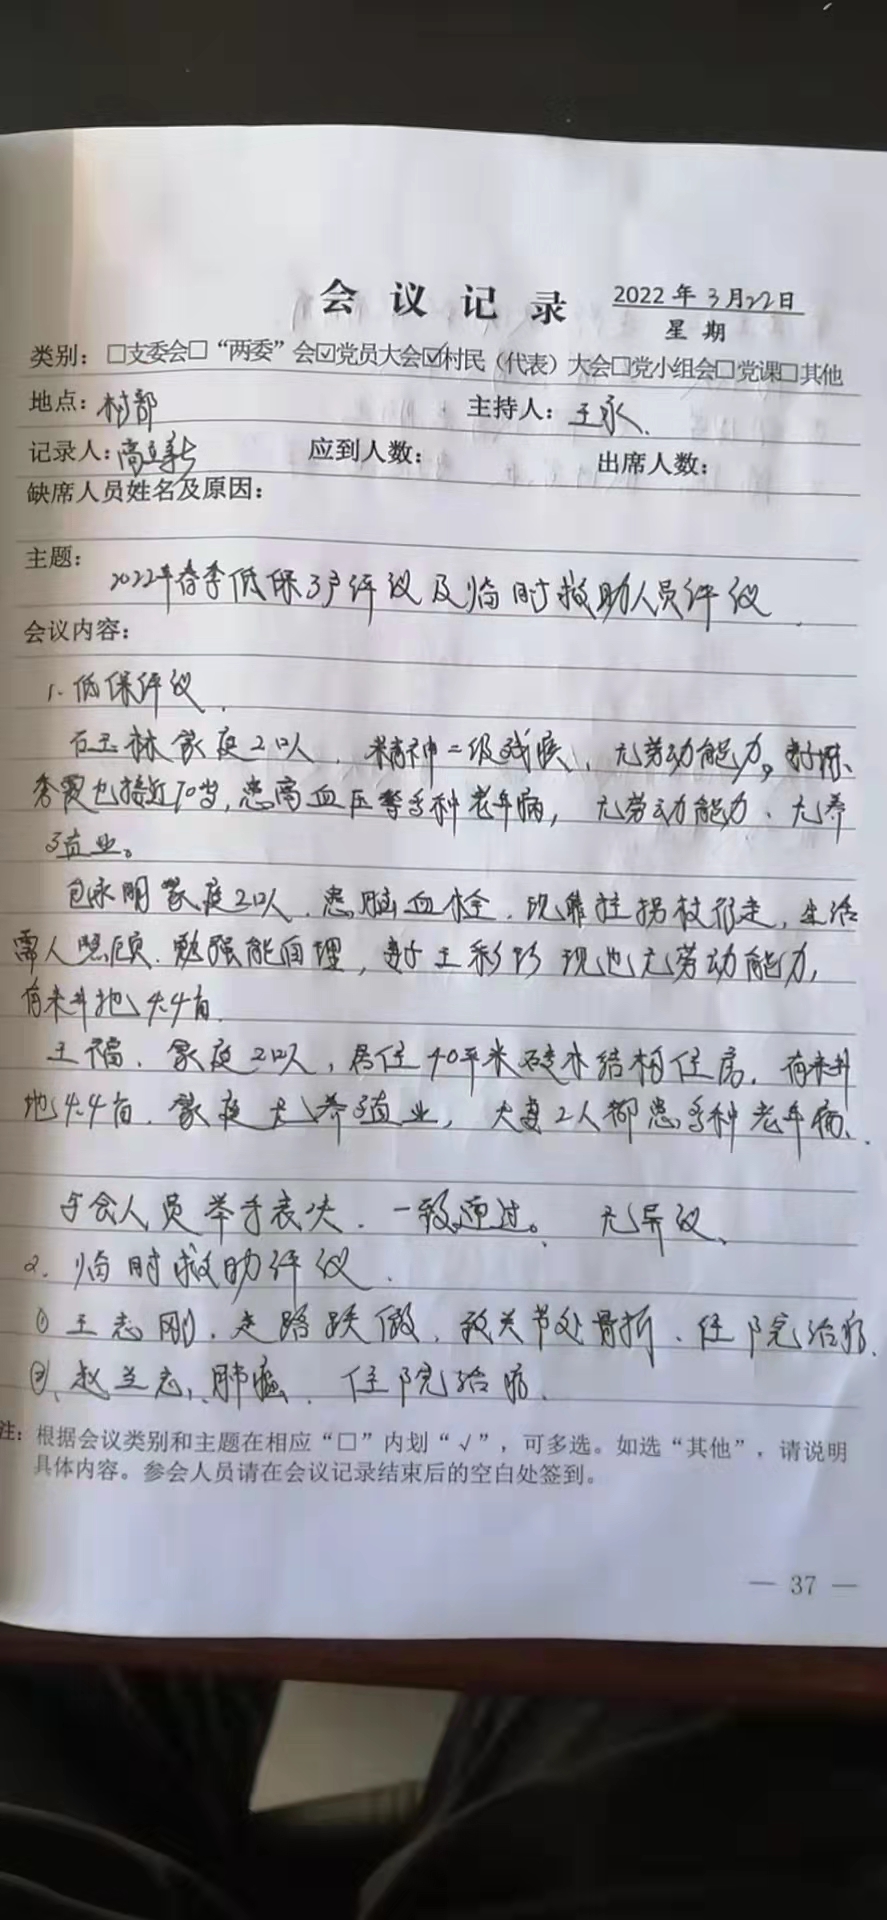 会议记录 2022年3月22日
星期
类别：□支委会□“两委”会☑党员大会☑村民（代表）大会□党小组会□党课□其他
地点：村部 主持人：王永
记录人：高立新 应到人数： 出席人数：
缺席人员姓名及原因：
主题：
2022年春季低保户评议及临时救助人员评议
会议内容：
1. 低保评议
石玉林家庭2口人，精神二级残疾、无劳动能力，妻子陈
秀霞也接近70岁，患高血压等多种老年病，无劳动能力、无养
殖业。
包永明家庭2口人，患脑血栓，现靠拄拐杖行走，生活
需人照顾，勉强能自理，妻子王彩珍现也无劳动能力，
有耒井地4.4亩
王福，家庭2口人，居住40平米砖木结构住房，有耒井
地4.4亩，家庭无养殖业，夫妻2人都患多种老年病、
与会人员举手表决，一致通过。无异议、
2. 临时救助评议
① 王志刚，走路跌倒，关节处骨折、住院治疗
②、赵兰志，肺癌，住院治疗
注：根据会议类别和主题在相应“□”内划“√”，可多选。如选“其他”，请说明
具体内容。参会人员请在会议记录结束后的空白处签到。
— 37 —